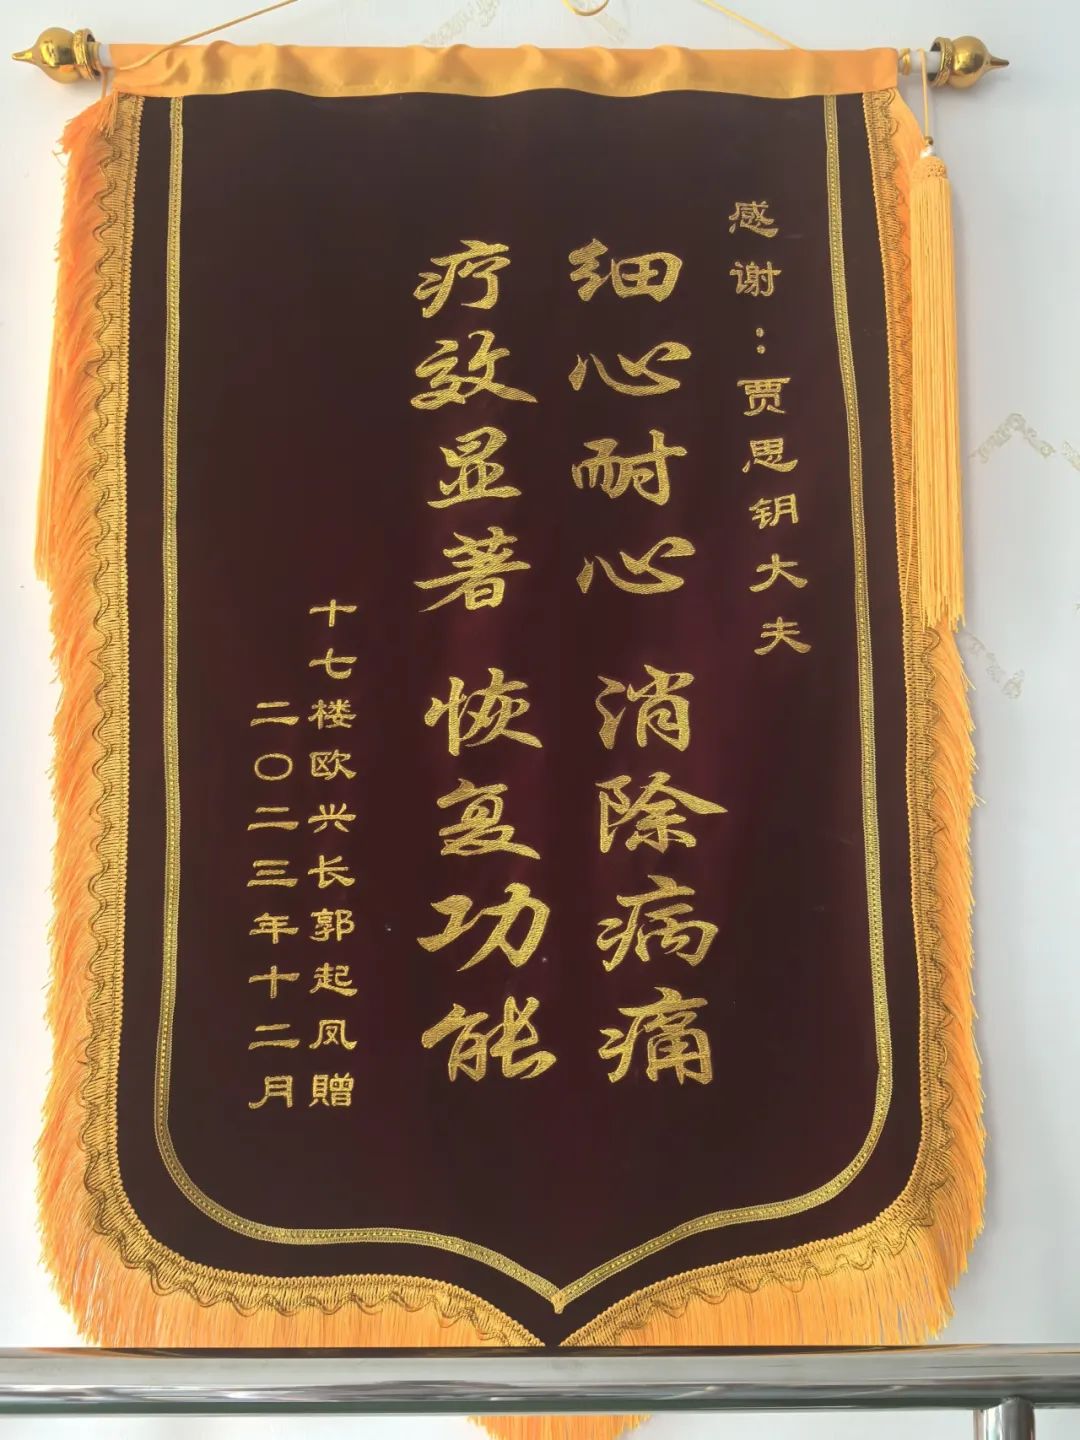 感谢：贾思钥大夫
细心耐心 消除病痛
疗效显著 恢复功能
十七楼欧兴长郭起凤贈
二〇二三年十二月